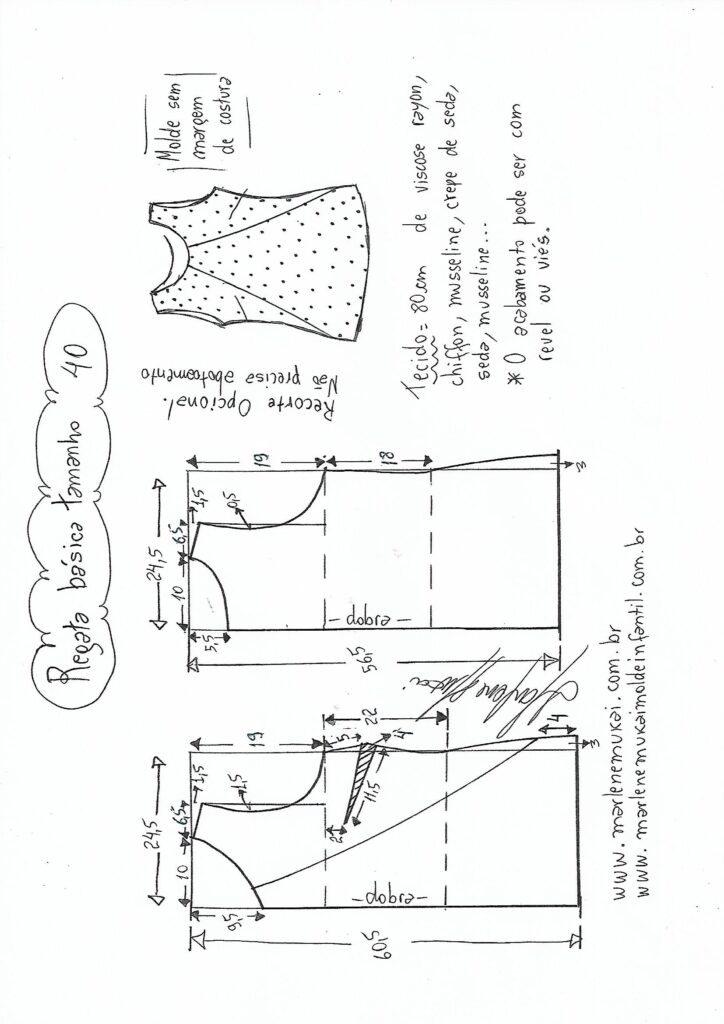 Regata básica tamanho 40
Molde sem
margem
de costura
Recorte Opcional.
Não precisa abotoamento
Tecido = 80cm de viscose rayon,
chiffon, musseline, crepe de seda,
seda, musseline...
* O acabamento pode ser com
revel ou viés.
24,5
10
6,5
1,5
19
5,5
0,5
18
-dobra-
3
56,5
24,5
10
6,5
1,5
19
9,5
1,5
5
22
4
11,5
2
-dobra-
4
3
60,5
Marlene Mukai
www.marlenemukai.com.br
www.marlenemukaimoldeinfantil.com.br